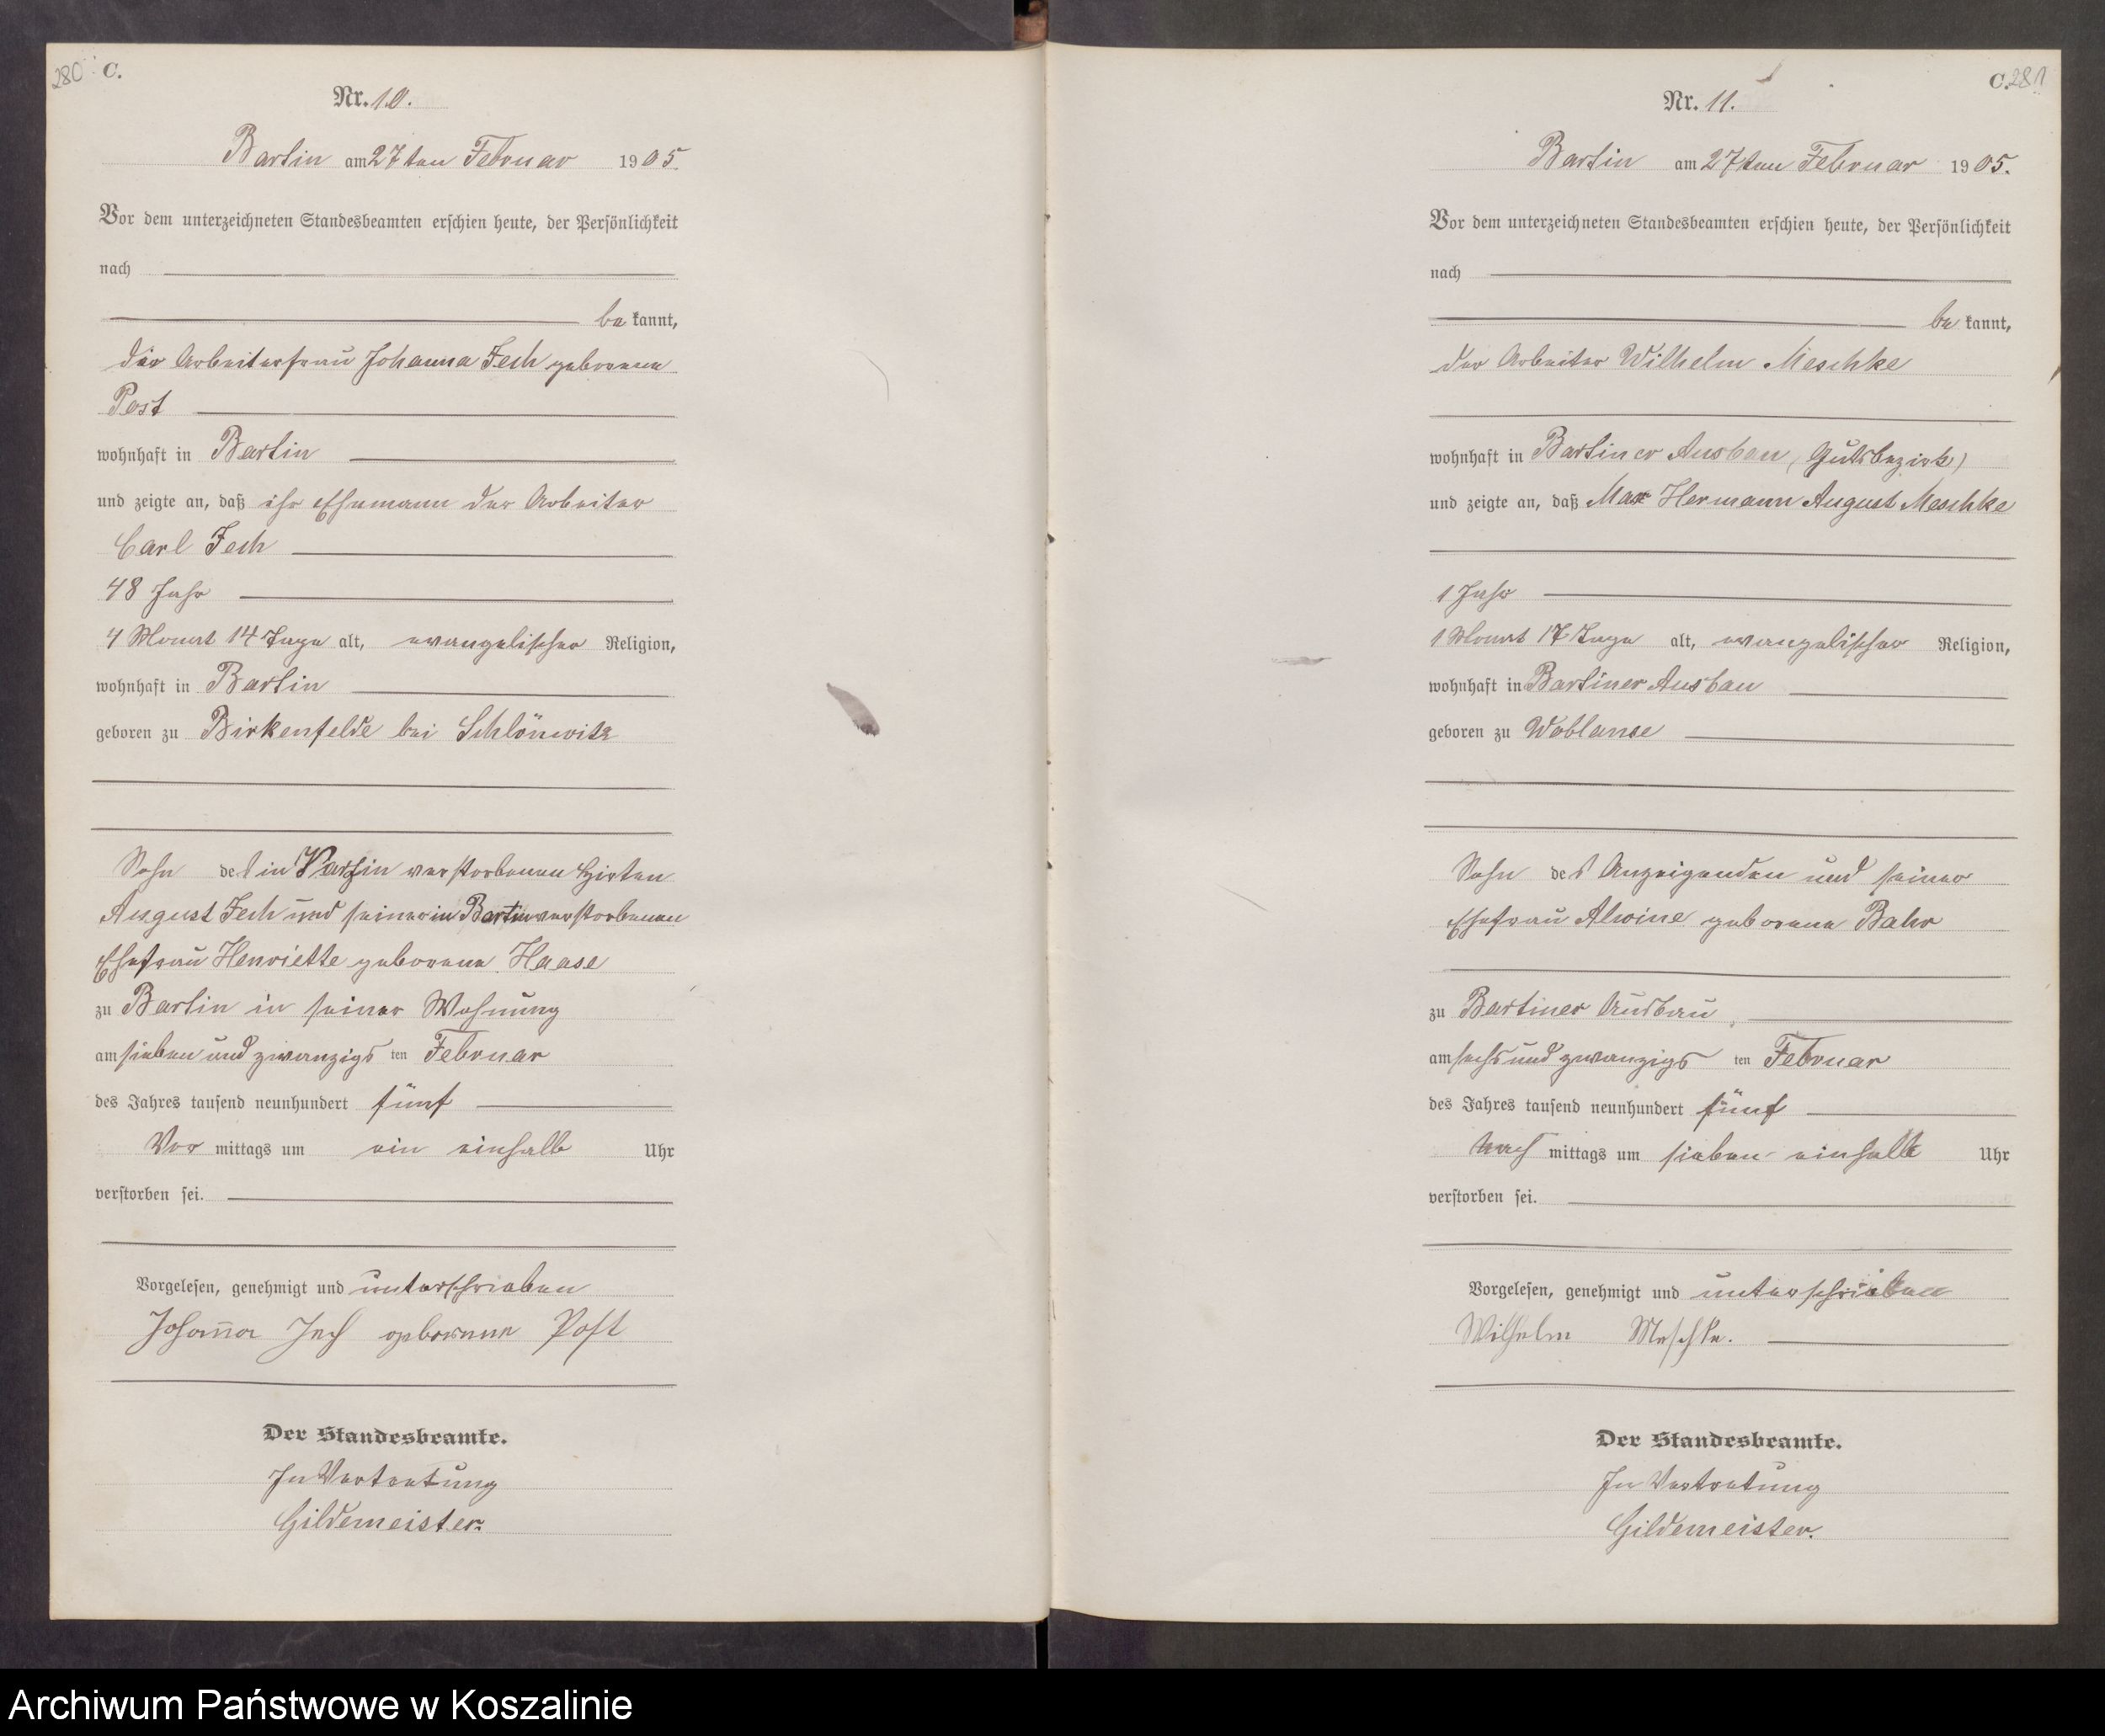 280 C.
Nr. 10.
Bartin am 27ten Februar 1905.
Vor dem unterzeichneten Standesbeamten erschien heute, der Persönlichkeit
nach
be kannt,
die Arbeiterfrau Johanna Jech geborene
Post
wohnhaft in Bartin
und zeigte an, daß ihr Ehemann der Arbeiter
Carl Jech
48 Jahr
4 Monat 14 Tage alt, evangelischer Religion,
wohnhaft in Bartin
geboren zu Birkenfelde bei Schlönwitz
Sohn des in Varzin verstorbenen Hirten
August Jech und seiner in Bartin verstorbenen
Ehefrau Henriette geborene Haase
zu Bartin in seiner Wohnung
am sieben und zwanzigs ten Februar
des Jahres tausend neunhundert fünf
Vor mittags um ein einhalb Uhr
verstorben sei.
Vorgelesen, genehmigt und unterschrieben
Johanna Jech geborene Post
Der Standesbeamte.
In Vertretung
Gildemeister.
C. 281
Nr. 11.
Bartin am 27ten Februar 1905.
Vor dem unterzeichneten Standesbeamten erschien heute, der Persönlichkeit
nach
be kannt,
der Arbeiter Wilhelm Meschke
wohnhaft in Bartiner Ausbau (Gutsbezirk)
und zeigte an, daß Max Hermann August Meschke
1 Jahr
1 Monat 17 Tage alt, evangelischer Religion,
wohnhaft in Bartiner Ausbau
geboren zu Woblanse
Sohn des Anzeigenden und seiner
Ehefrau Alwine geborene Bahr
zu Bartiner Ausbau
am sechs und zwanzigs ten Februar
des Jahres tausend neunhundert fünf
Nach mittags um sieben einhalb Uhr
verstorben sei.
Vorgelesen, genehmigt und unterschrieben
Wilhelm Meschke.
Der Standesbeamte.
In Vertretung
Gildemeister.
Archiwum Państwowe w Koszalinie